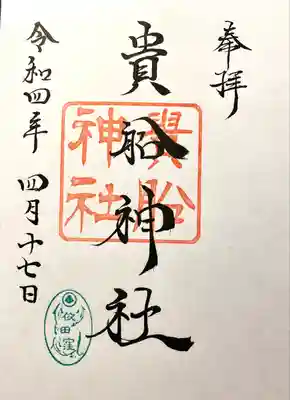 奉拝
貴船神社
貴船
神社
令和四年 四月十七日